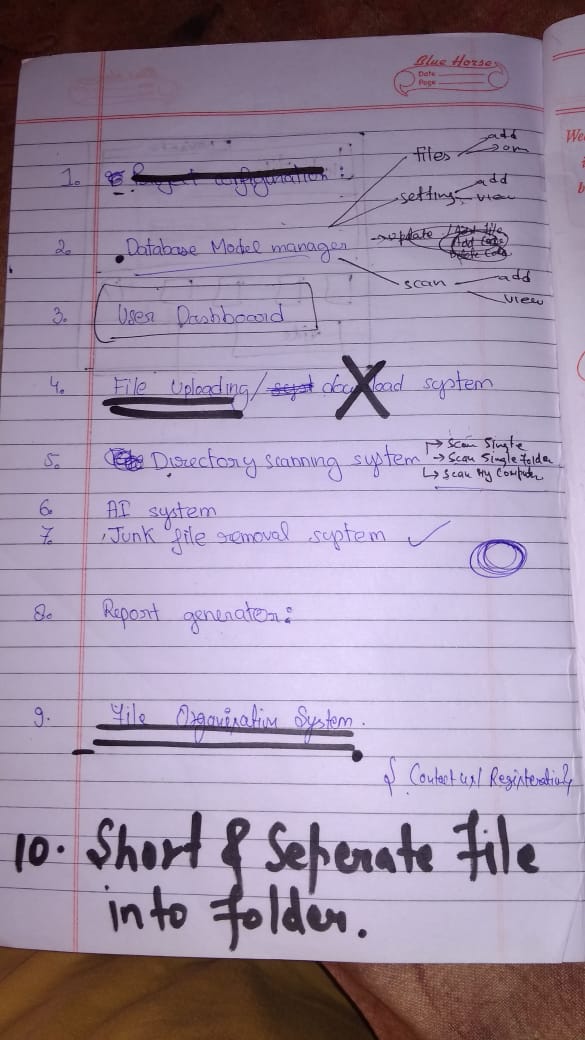 Blue Horse
Date
Page
add
files
rom
1. Project configuration :
add
setting
view
2. Database Model manager
→ update
Add file
Add Code
Delete Code
scan
add
view
3. User Dashboard
4. File Uploading/ load system
5. Directory scanning system
→ Scan Single
→ Scan Single Folder
→ Scan My Computer
6. AI system
7. Junk file removal system ✓
8. Report generator:
9. File Organization System.
{ Contact us/ Registeration}
10. Short & Seperate file
into folder.